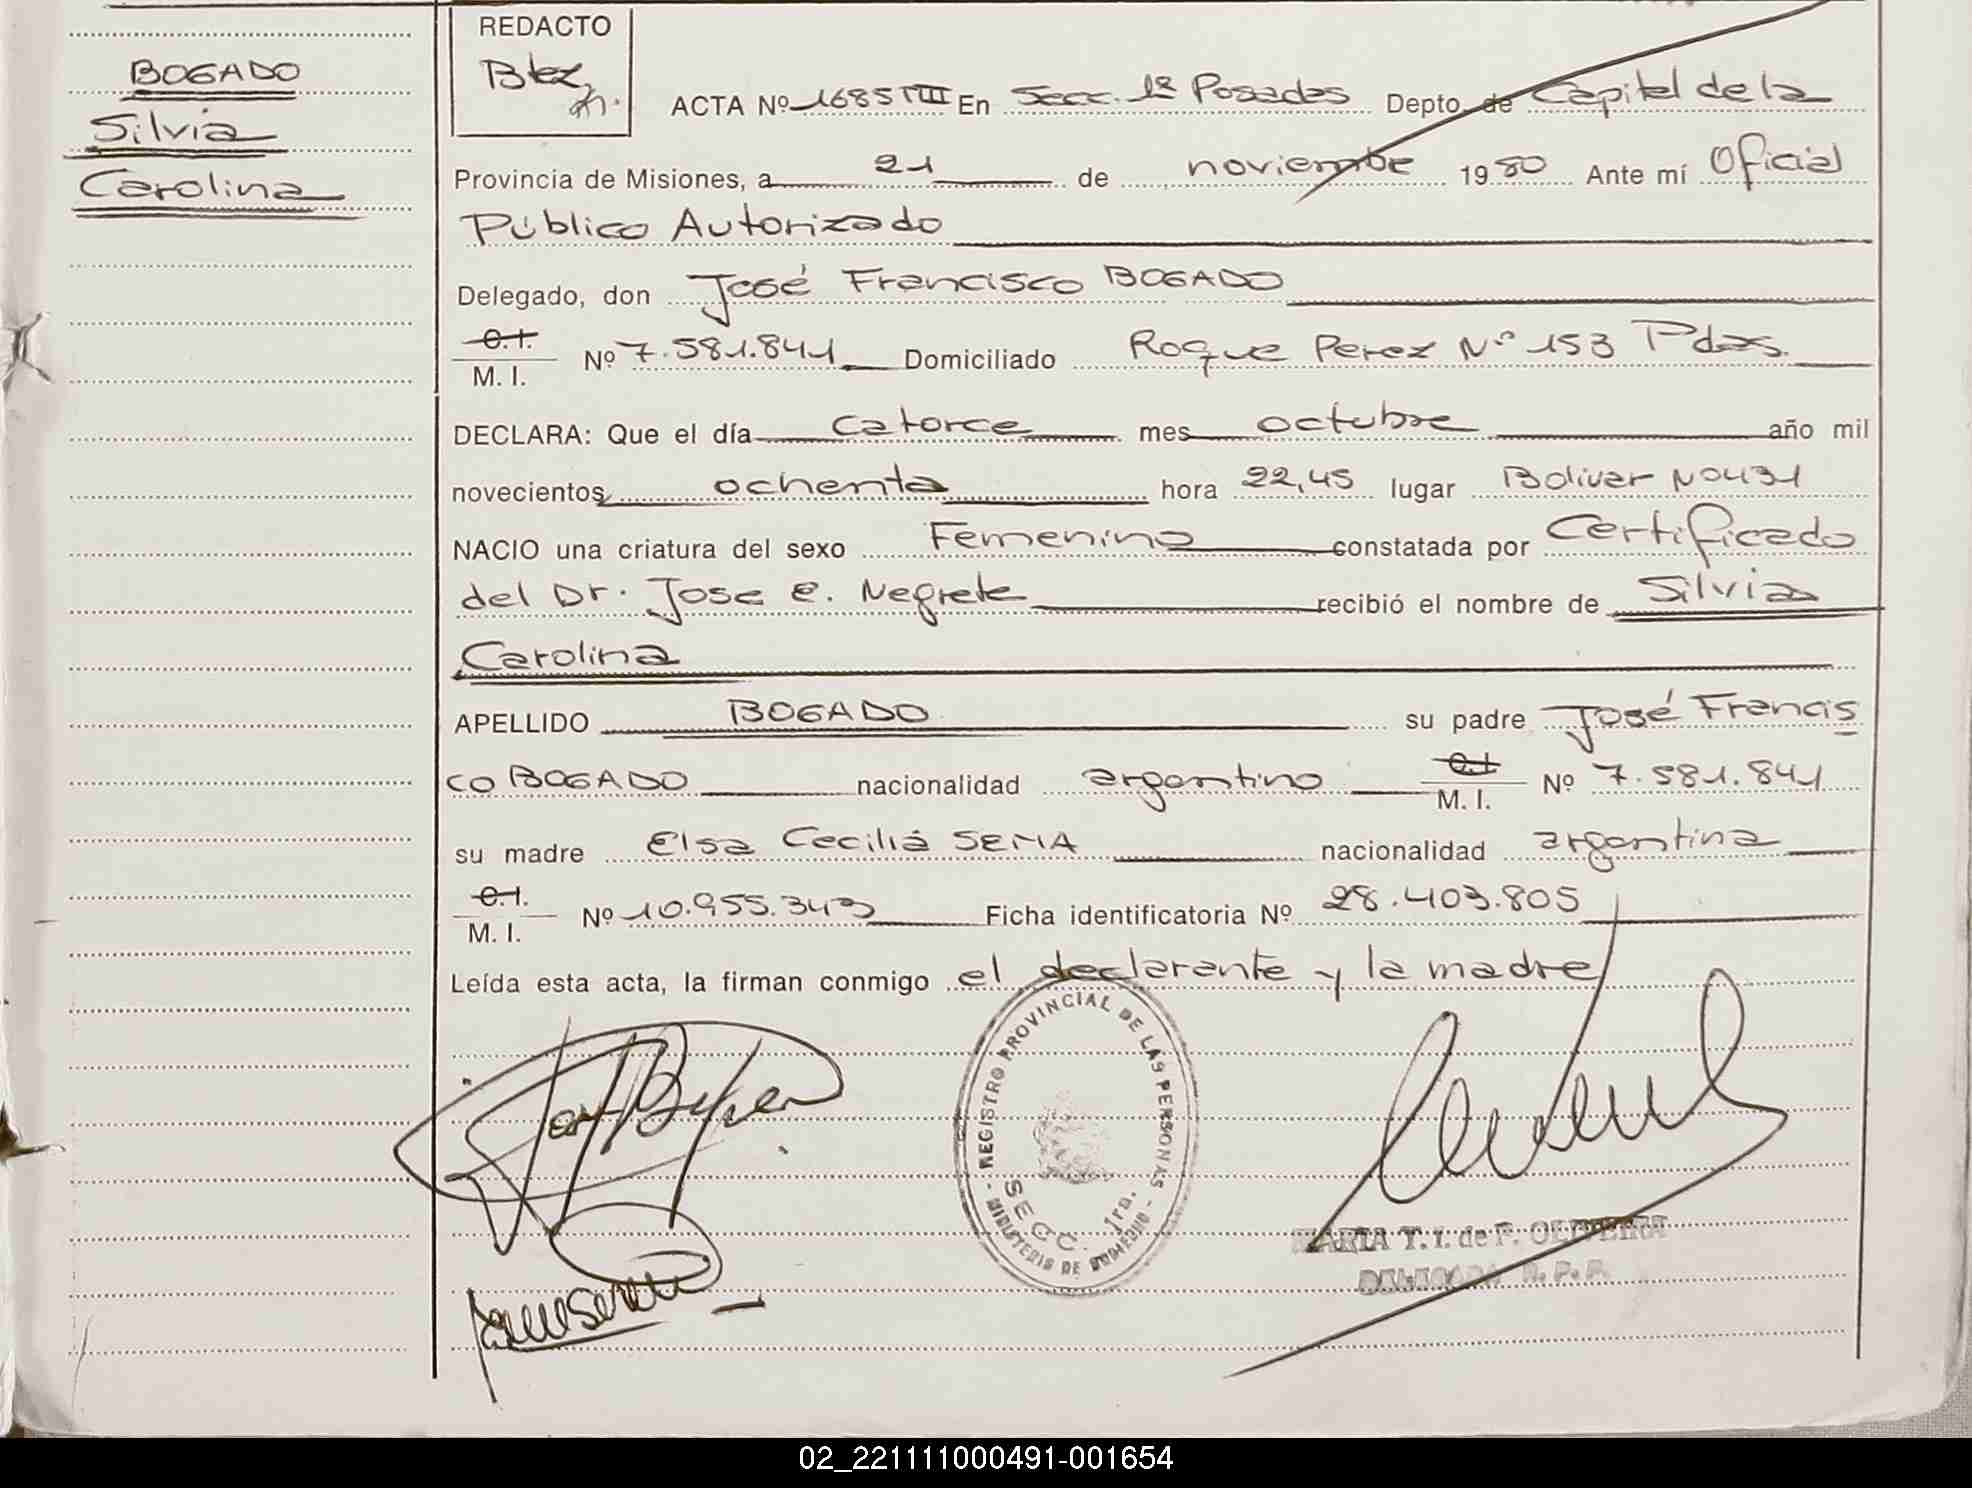 BOGADO
Silvia
Carolina
REDACTO
Btez
ACTA Nº 1685 TIII En Secc. 1ª Posadas Depto. de Capital de la
Provincia de Misiones, a 21 de noviembre 1980 Ante mí Oficial
Público Autorizado
Delegado, don José Francisco BOGADO
C.I.
M. I. Nº 7.581.841 Domiciliado Roque Perez Nº 153 Pdas.
DECLARA: Que el día catorce mes octubre año mil
novecientos ochenta hora 22,45 lugar Bolivar Nº 431
NACIO una criatura del sexo Femenino constatada por Certificado
del Dr. Jose E. Negrete recibió el nombre de Silvia
Carolina
APELLIDO BOGADO su padre José Francis
co BOGADO nacionalidad argentino C.I. M. I. Nº 7.581.841
su madre Elsa Cecilia SENA nacionalidad argentina
C.I.
M. I. Nº 10.955.343 Ficha identificatoria Nº 28.403.805
Leída esta acta, la firman conmigo el declarante y la madre
REGISTRO PROVINCIAL DE LAS PERSONAS
SECC. 1ra.
MINISTERIO DE GOBIERNO
MARIA T. I. de F. OLIVEIRA
DELEGADA R. P. P.
02_221111000491-001654